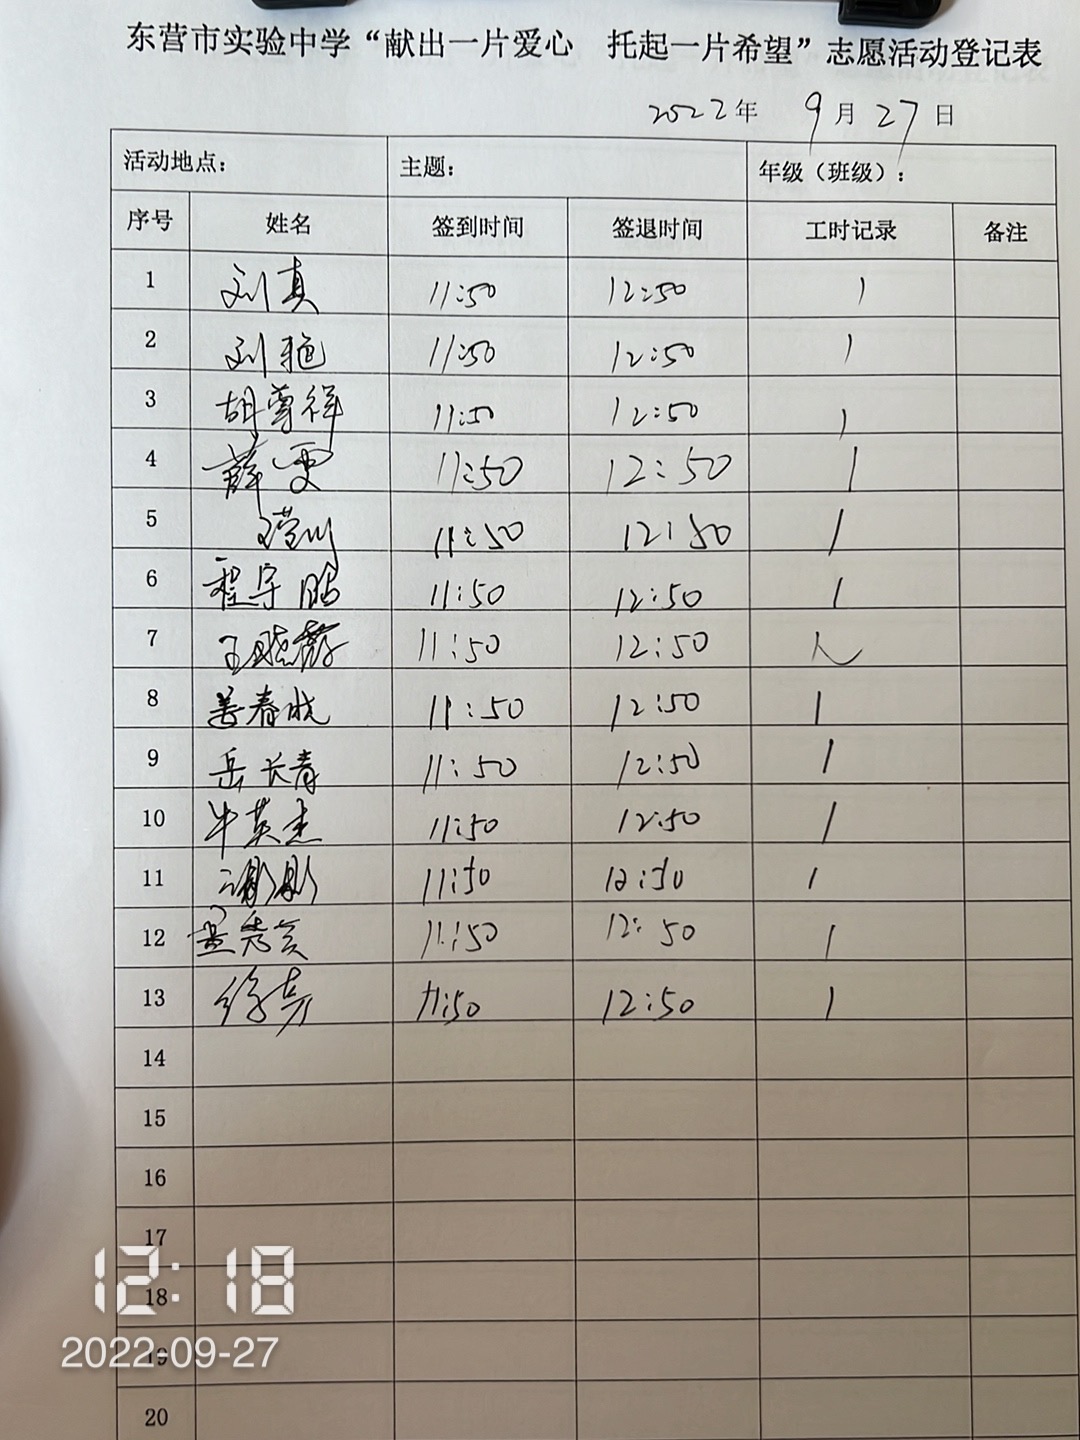 东营市实验中学“献出一片爱心 托起一片希望”志愿活动登记表
2022年 9月27日
活动地点： 主题： 年级（班级）：
序号 姓名 签到时间 签退时间 工时记录 备注
1 刘真 11:50 12:50 1
2 刘艳 11:50 12:50 1
3 胡尊祥 11:50 12:50 1
4 薛雯 11:50 12:50 1
5 11:50 12:50 1
6 程宇鹏 11:50 12:50 1
7 王晓霞 11:50 12:50
8 姜春晓 11:50 12:50 1
9 岳长青 11:50 12:50 1
10 牛英杰 11:50 12:50 1
11 11:50 12:50 1
12 11:50 12:50 1
13 徐亮 11:50 12:50 1
14
15
16
17
18
19
20
12:18
2022-09-27